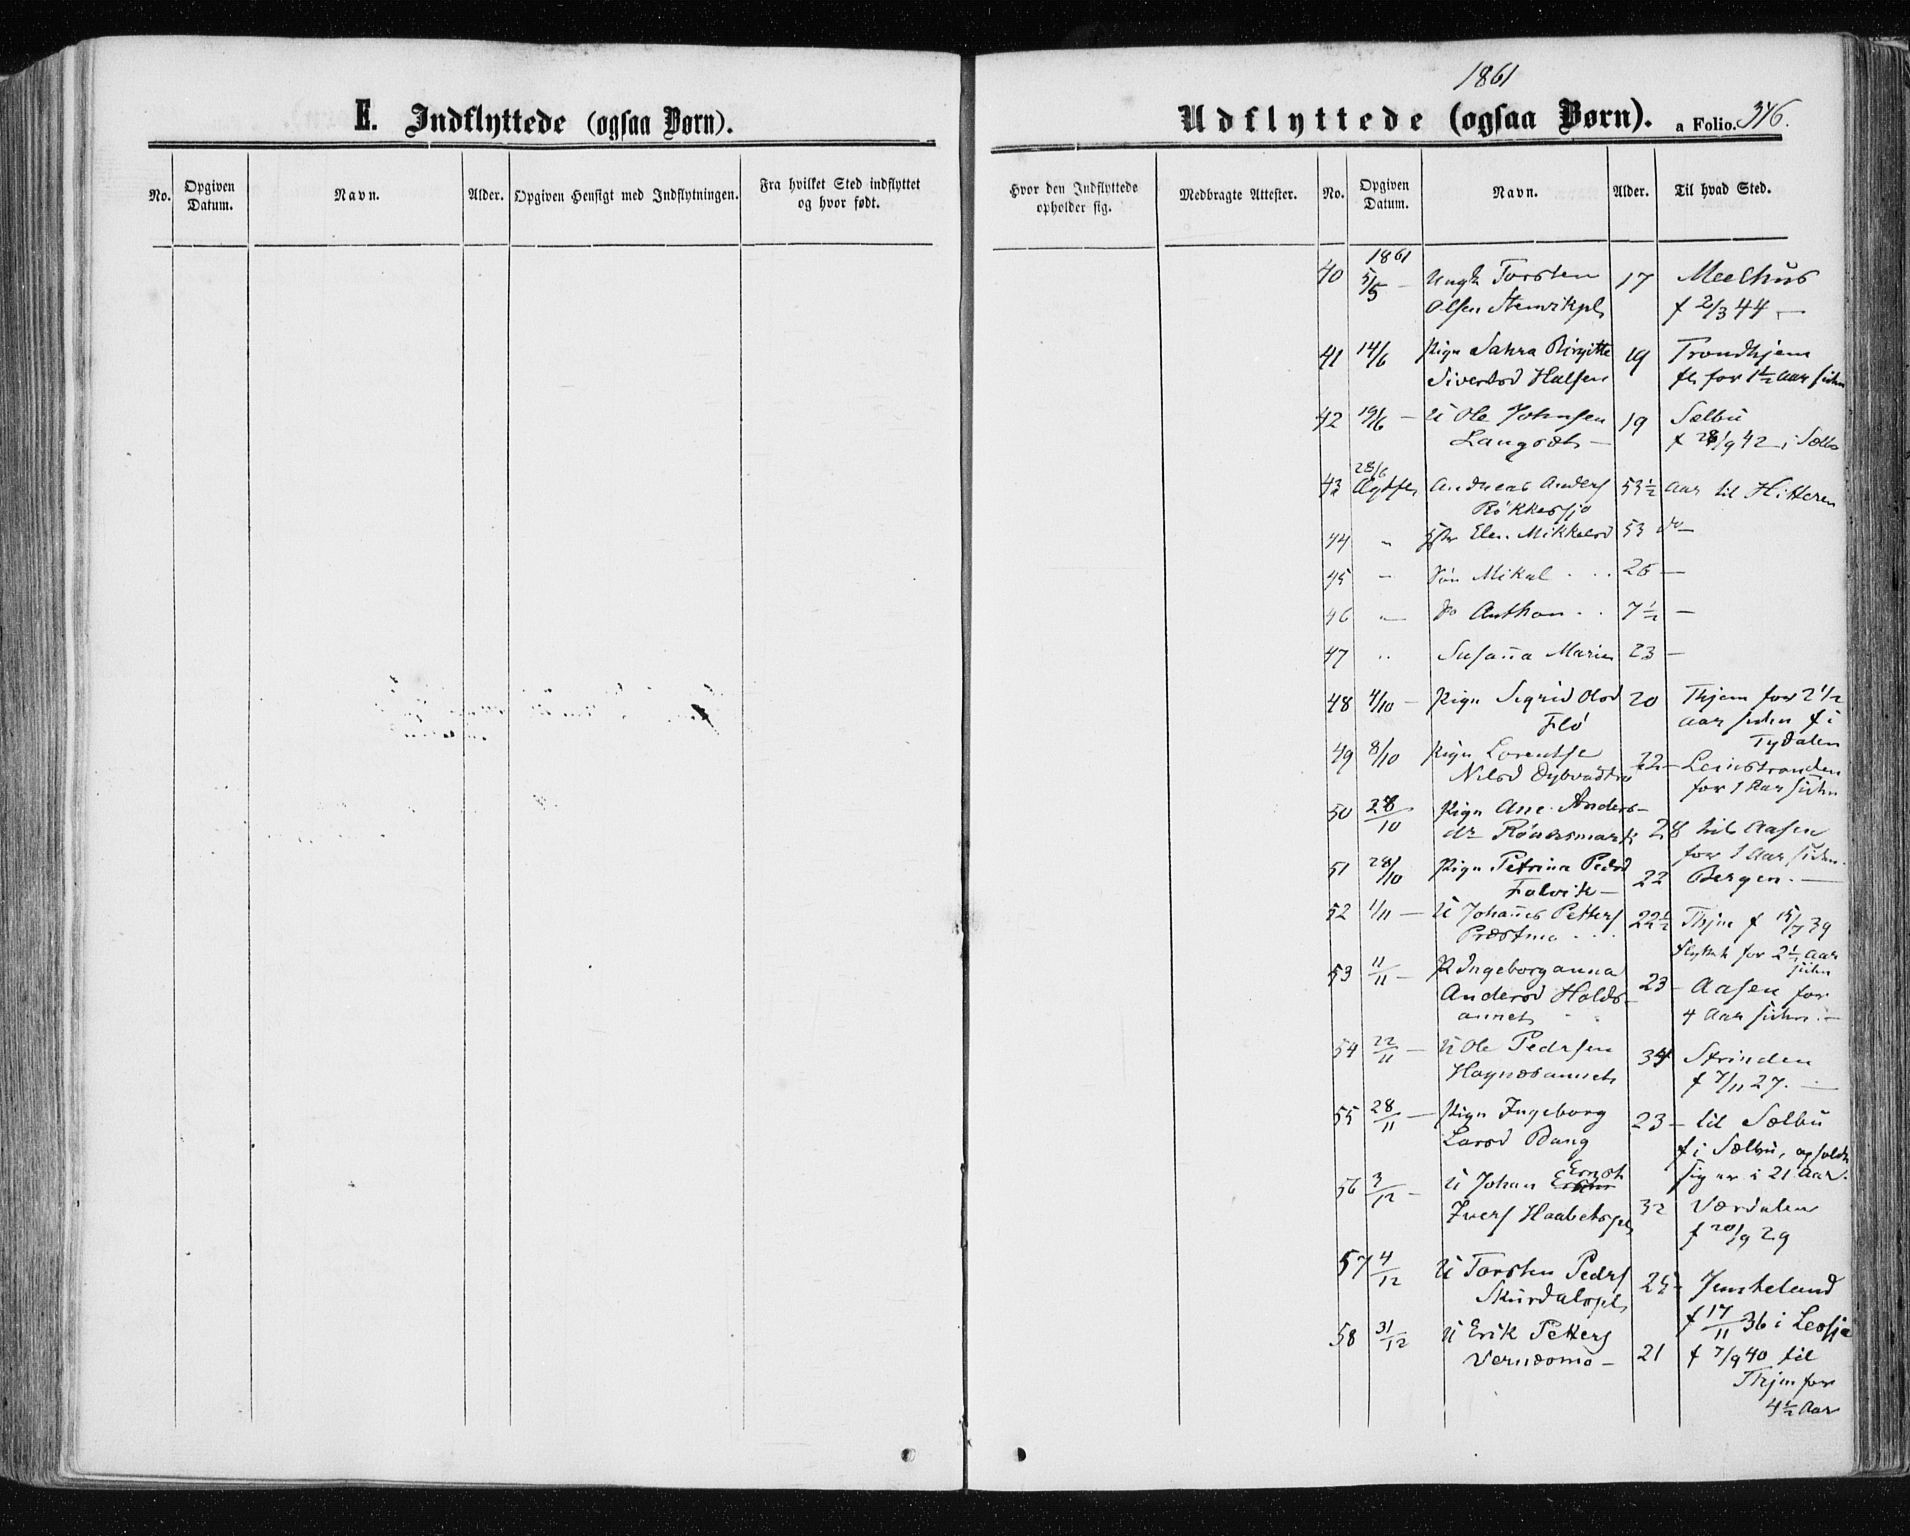 E. Indflyttede (ogsaa Børn).
No.
Opgiven Datum.
Navn.
Alder.
Opgiven Hensigt med Indflytningen.
Fra hvilket Sted indflyttet og hvor født.
1861
Udflyttede (ogsaa Børn).
a Folio. 346.
Hvor den Indflyttede opholder sig.
Medbragte Attester.
No.
Opgiven Datum.
Navn.
Alder.
Til hvad Sted.
1861
40 5/5 — Ungk Torsten 17 Meelhus
Olsen Stenvikpl f 2/3 44 —
41 14/6 Pign Sahra Birgitte 19 Trondhjem
Sivertsd Halsen fl for 1½ Aar siden
42 19/6 — U Ole Johnsen 19 Sælbu
Langset — f 28/9 42 i Sælbo
28/6
43 Andreas Anders 53½ Aar til Hitteren
44 " Elen Mikkelsd 53 do —
45 " Søn Mikal . . 25 —
46 " do Anthon . . 7½ —
47 " Susanna Marie 23 —
48 4/10 — Pign Sigrid Olsd 20 Thjem for 2½
Flø Aar siden f i
Tydalen
49 8/10 Pign Lorentse 22 — Leinstranden
Nilsd Dybvad for 1 Aar siden
50 28/10 Pign Ane Anders-
dr 28 til Aasen
for 1 Aar siden.
51 28/10 Pign Petrina Pedsd 22 Bergen. —
Folvik —
52 1/11 — U Johannes Petters 22½ Thjem f 15/7 39
Præstmo . . . flyttet for 2½ Aar
siden
53 11/11 — P Ingeborganna 23 — Aasen for
Andersd Holds- 4 Aar siden. —
annet
54 22/11 — U Ole Pedersen 34 Strinden
f 7/11 27. —
55 28/11 — Pign Ingeborg 23 — til Sælbu
Larsd Bang f i Sælbu, opholdt
sig er i 21 Aar.
Ernst
56 3/12 — U Johan
Ivers Haabetspl 32 Værdalen
f 20/9 29
57 4/12 U Torsten Peders 25 —
Skurdalspl f 17/11 36 i Lessje
58 31/12 U Erik Petters
Vernesmo — 21 f 7/9 40 til
Thjem for
4½ Aar